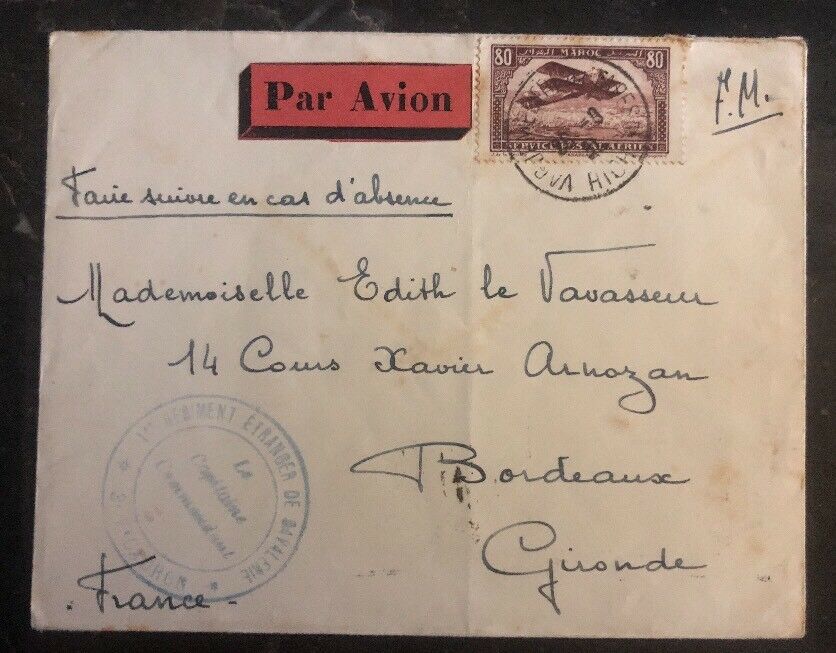 Par Avion
80 MAROC 80
F.M.
Faire suivre en cas d'absence
Mademoiselle Edith le Vavasseur
14 Cours Xavier Arnozan
Bordeaux
Gironde
France
1er REGIMENT ETRANGER DE CAVALERIE
Le
Capitaine
Commandant